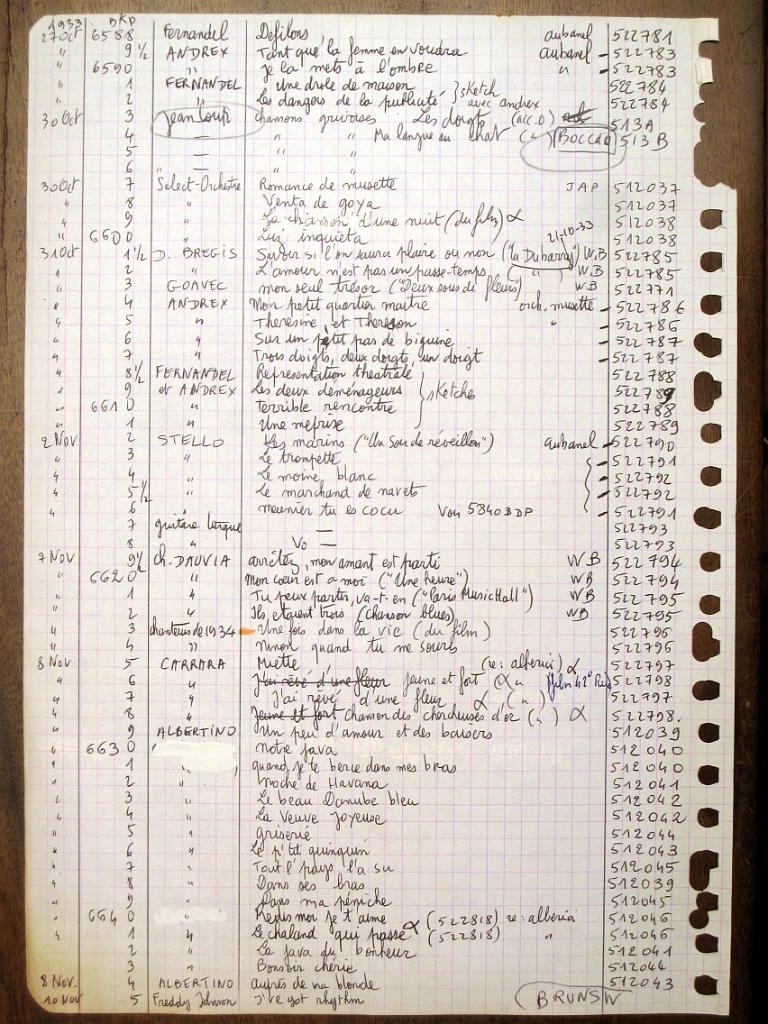 1933 BKP
27 Oct 6588 Fernandel Defilons, aubanel 522781
" 9½ ANDREX Tant que la femme en voudra aubanel - 522783
" 6590 " je la mets à l'ombre " - 522783
" 1 FERNANDEL Une drole de maison } sketch 522784
" 2 " Les dangers de la publicité avec andrex 522784
30 Oct 3 Jean Loup chansons grivoises Les doigts (acc.O) 513A
4 = " " Ma langue au chat (") BOCCAO 513B
5 =
6 " =
30 Oct 7 Select-Orchestre Romance de musette JAP 512037
" 8 " Venta de goya 512037
" 9 " La chanson d'une nuit (du film) α 512038
" 6600 " Luis inquieta 21-10-33 512038
31 Oct 1½ D. BREGIS Savoir si l'on saura plaire ou non ("la Dubarry") WB 522785
" 2 " L'amour n'est pas un passe-temps (") WB 522785
" 3 GOAVEC mon seul trésor ("Deux sous de fleurs") WB 522771
" 4 ANDREX Mon petit quartier maitre orch. musette - 522786
" 5 " Theresine et Thereson " - 522786
" 6 " Sur un petit pas de biguine - 522787
" 7 " Trois doigts, deux doigts, un doigt - 522787
" 8½ FERNANDEL Representation theatrale 522788
" 9 et ANDREX Les deux déménageurs } sketches 522789
" 6610 " Terrible rencontre 522788
" 1 " Une meprise 522789
2 Nov 2 STELLO Les marins ("Un soir de réveillon") aubanel - 522790
" 3 " Le trompette - 522791
" 4 " Le moine blanc - 522792
" 5½ " Le marchand de navets - 522792
" 6 " meunier tu es cocu Voir 5840BDP - 522791
7 guitare = 522793
8 " Vo = 522793
7 Nov 9½ Ch. DAUVIA arrêtez, mon amant est parti WB 522794
" 6620 " Mon coeur est a moi ("Une heure") WB 522794
" 1 " Tu peux partir, va-t-en ("Paris Music Hall") WB 522795
" 2 " Ils etaient trois (chanson blues) WB 522795
" 3 chanteurs de 1934 Une fois dans la vie (du film) 522796
" 4 " Ninon quand tu me souris 522796
8 Nov 5 CARRARA Miette (re: alberia) α 522797
" 6 " J'ai rêvé d'une fleur jeune et fort (α " 522798
" 7 " J'ai rêvé d'une fleur α (") 522797
" 8 " Jeune et fort chanson des chercheuses d'or (") α 522798.
" 9 ALBERTINO Un peu d'amour et des baisers 512039
" 6630 Notre java 512040
" 1 " quand je te berce dans mes bras 512040
" 2 " Moche de Havana 512041
" 3 " Le beau Danube bleu 512042
" 4 " La Veuve Joyeuse 512042
" 5 " griserie 512044
" 6 " Le p'tit quinquin 512043
" 7 " Tout l'pays l'a su 512045
" 8 " Dans ses bras 512039
" 9 " Dans ma péniche 512045
" 6640 Redis moi je t'aime α (522818) re: alberia 512046
" 1 " Le chaland qui passe (522818) " 512046
2 " La java du bonheur 512041
3 " Bonsoir chérie 512044
8 Nov. 4 ALBERTINO auprès de ma blonde 512043
10 Nov 5 Freddy Johnson I've got rhythm BRUNSW